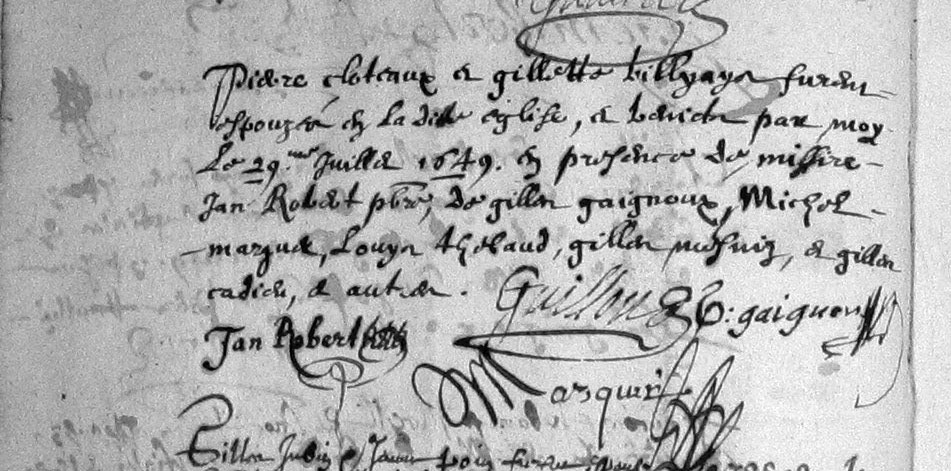 Pierre cloteaux et gillette billyayer furent
espouzés en la dite église, et beniets par moy
Le 29.me Juillet 1649. en presence de missire
Jan Robert pbre, de gilles gaignoux, Michel
marquer, Louys thebaud, gilles mesniz, et gilles
cadieu, et autres.
Guilloux G: gaignoux
Jan Robert
Marquer
Gilles